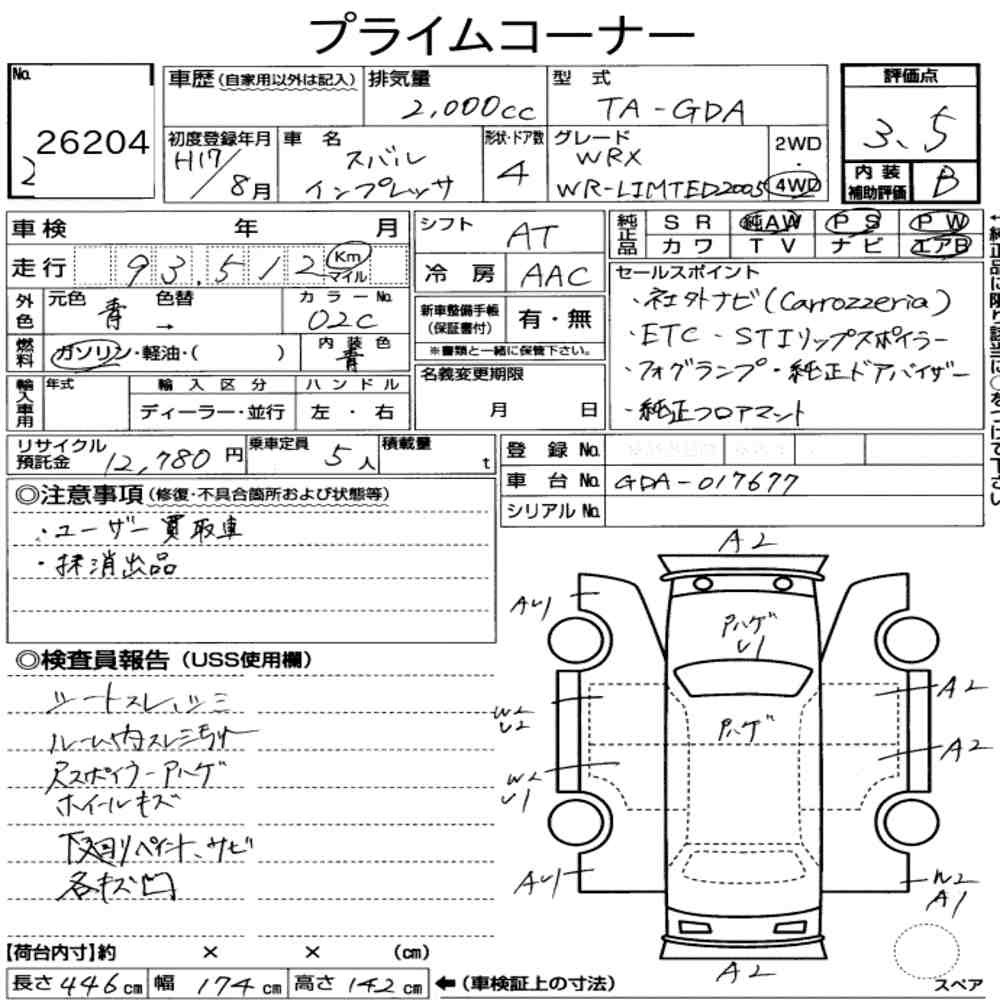 プライムコーナー
No.
26204
2
車歴(自家用以外は記入)
排気量
2,000cc
型 式
TA-GDA
評価点
3.5
初度登録年月
H17/8月
車 名
スバル
インプレッサ
形状・ドア数
4
グレード
WRX
WR-LIMTED2005
2WD
・
4WD
内 装
補助評価
B
車検 年 月
シフト
AT
純正品
SR 純AW PS PW
カワ TV ナビ エアB
走行 93,512 Km
マイル
冷 房
AAC
セールスポイント
・社外ナビ(Carrozzeria)
・ETC ・STIリップスポイラー
・フォグランプ・純正ドアバイザー
・純正フロアマット
外色
元色 色替
青 →
カラーNo.
02C
新車整備手帳
(保証書付)
有・無
※書類と一緒に保管下さい。
燃料
ガソリン・軽油・( )
内 装 色
青
輸入車用
年式
輸 入 区 分
ディーラー・並行
ハ ン ド ル
左 ・ 右
名義変更期限
月 日
リサイクル
預託金
12,780円
乗車定員
5人
積載量
t
登 録 No.
車 台 No.
GDA-017677
シリアル No.
◎注意事項(修復・不具合箇所および状態等)
・ユーザー買取車
・抹消出品
◎検査員報告(USS使用欄)
シートスレ、シミ
ルーム内スレシミ汚レ
Rスポイラーアハゲ
ホイールキズ
下廻りペイント、サビ
各キズ凹
A2
AU1
アハゲ
U1
アハゲ
W2
U2
W2
U1
A2
A2
AU1
W2
A1
A2
スペア
【荷台内寸】約 × × (cm)
長さ446cm 幅174cm 高さ142cm
←(車検証上の寸法)
←純正品に限り該当に○をつけて下さい